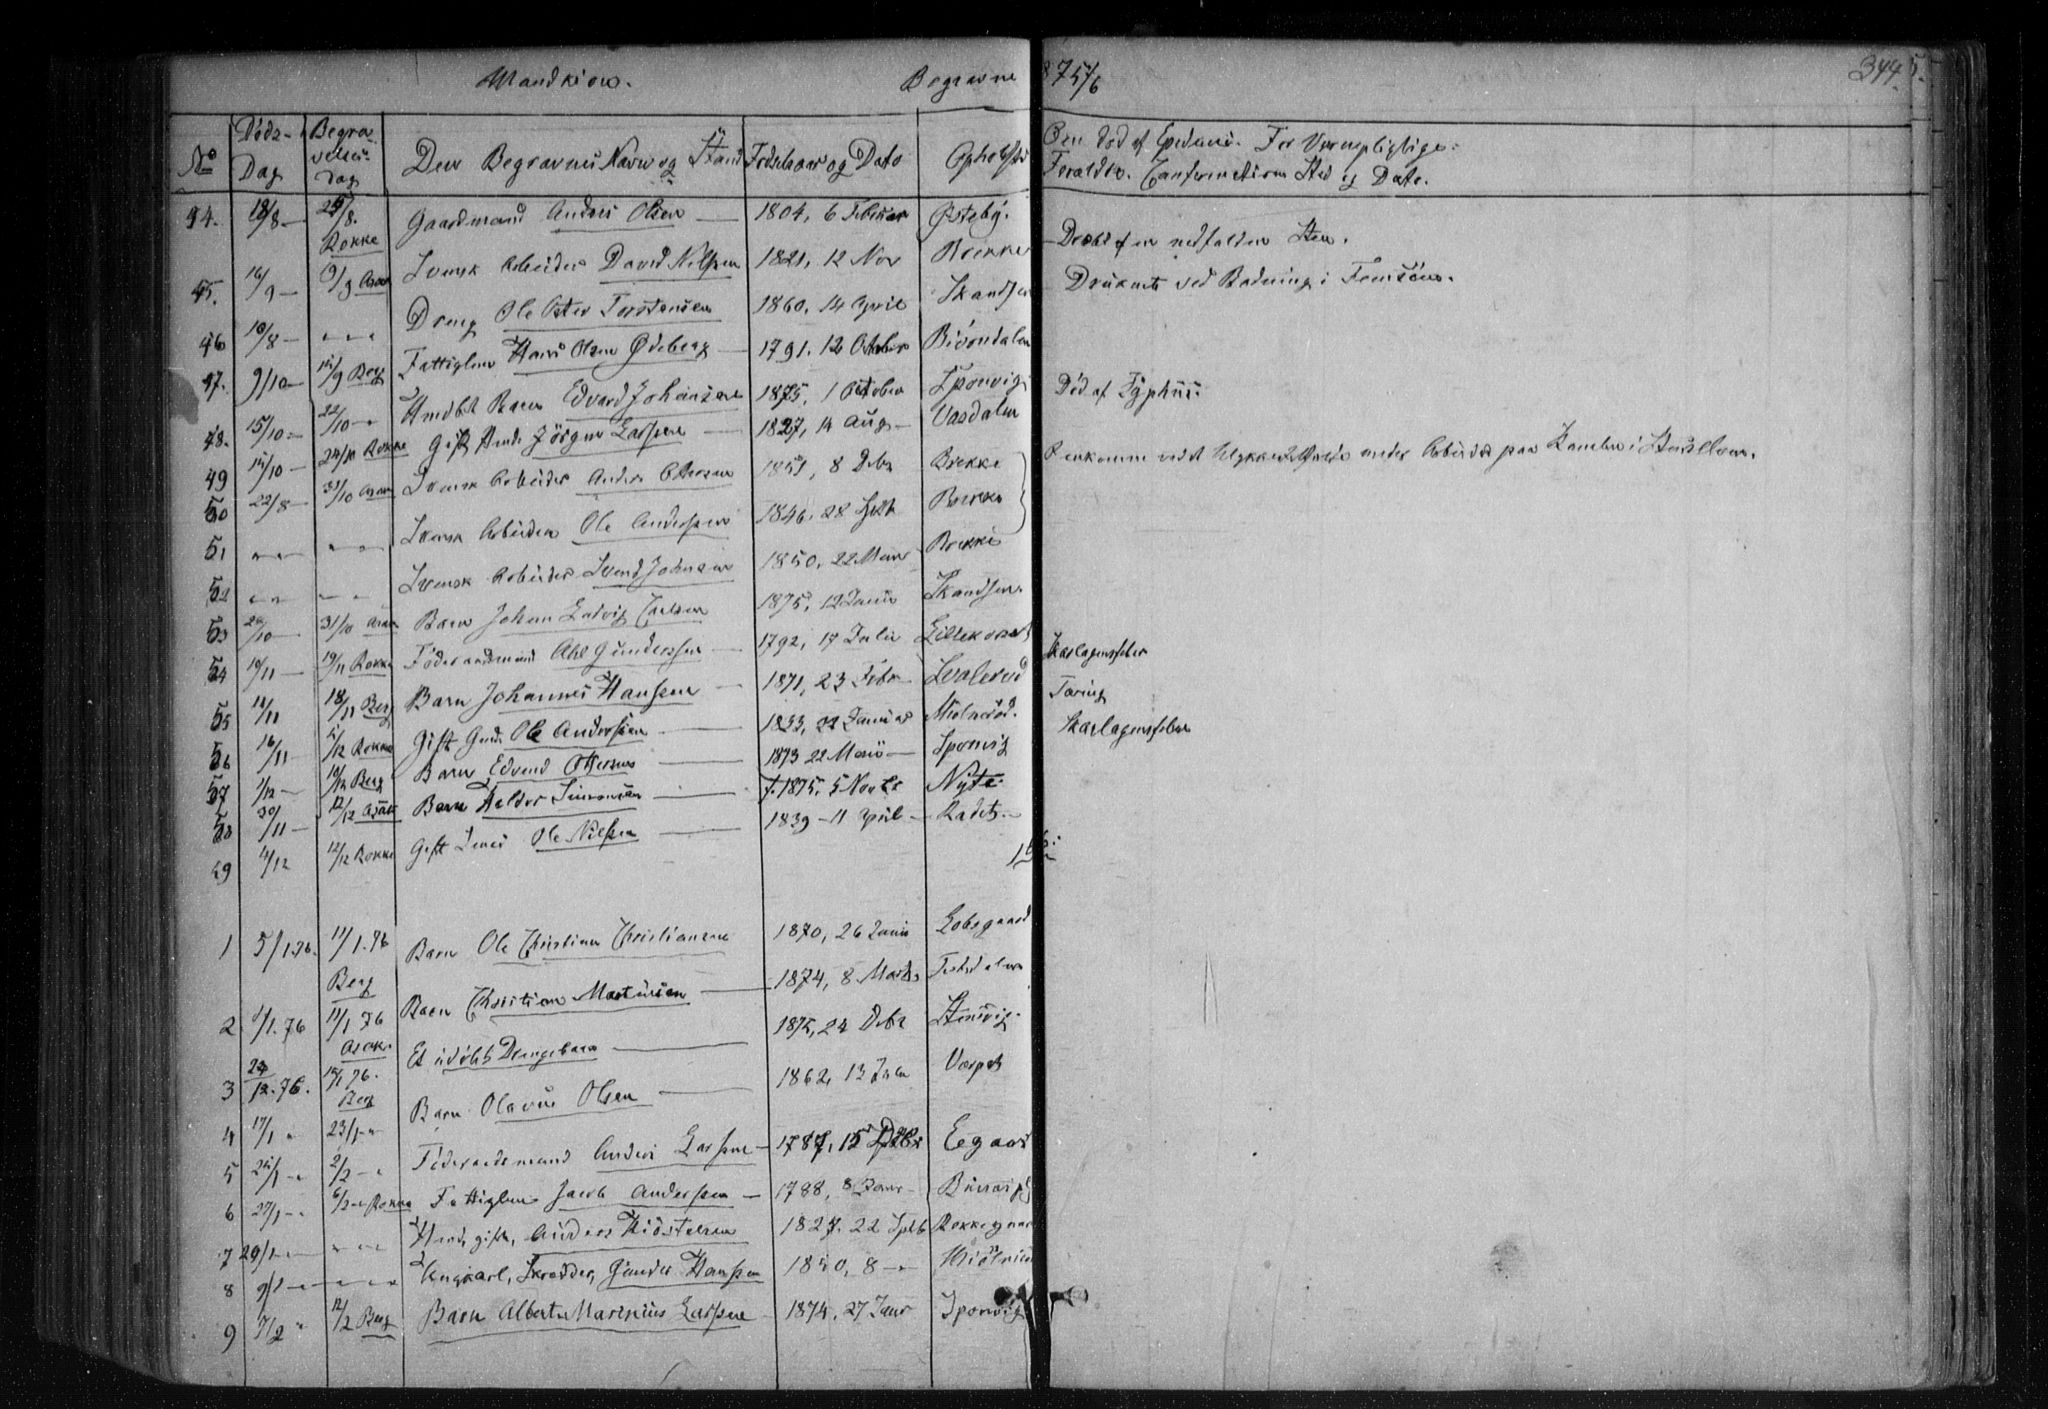 Mandkiøn. Begravne 875/6 344
No Døds-Dag Begravelses-dag Den Begravnes Navn og Stand Fødselsaar og Dato Opholdst Om død af Epidemi. For Vernepligtige:
Forældre. Confirmations Sted og Dato.
44. 18/8 — 25/8. Rokke Gaardmand Anders Olsen — 1804, 6 Februar Østeby.
45. 16/9 — 19/9 Asak Svensk Arbeider David Nilsen 1821, 12 Nov Brekke Dræbt af en nedfalden Sten.
46 10/8 — " " " Dreng Ole Peter Torstensen 1860, 14 April Skandsen Druknet ved Badning i Femsøen.
47. 9/10 — 15/9 Berg Fattiglem Hans Olsen Ødeberg — 1791, 12 October Bjørndalen
48. 15/10 — 22/10 — " Hmdst Barn Edvard Johansen 1875, 1 October Sponvig Død af Typhus.
49 15/10 — 24/10 Rokke Gift Hmd. Jørgen Larsen — 1827, 14 Aug — Vasdalen
50 22/8 — 31/10 Asak Svensk Arbeider Anders Ottersen 1851, 8 Debr Brekke Omkomne ved et Ulykkestilfælde under Arbeidet paa Kanalen i Stenselven.
51 " " " " Svensk Arbeider Ole Andersen 1846, 28 Sept Brekke
52 " " " " Svensk Arbeider Svend Johnsen 1850, 22 Mars Brekke
53 28/10 — 31/10 Asak Barn Johan Ludvig Carlsen 1875, 12 Juni Skandsen
54 10/11 — 19/11 Rokke Føderaadsmand Abel Gundersen — 1792, 17 Juli Lillekorset
55 12/11 18/11 Berg Barn Johannes Hansen — 1871, 23 Febr — Svalerød Skarlagensfeber
56 16/11 — 1/12 Rokke Gift Gmd. Ole Andersen — 1833, 22 Januar Stolnerød. Tæring
57 1/12 — 10/12 Berg Barn Edvard Ottersen — 1873 22 Mars — Sponvig Skarlagensfeber
58 30/11 — 12/12 Asak Barn Halvor Simensen — f. 1875, 5 Novbr Nyte.
59 4/12 12/12 Rokke Gift Inds Ole Nilsen — 1839 — 11 April — Kadets —
1 5/1 76. 11/1. 76 Berg Barn Ole Christian Christiansen 1870, 26 Juni Lobsgaard
2 1/1. 76 11/1 76 Asak Barn Christian Martinsen — 1874, 8 Marts Tostdalen
3 24/12. 76. 15/1 76. Berg Et udøbt Drengebarn — 1875, 24 Debr Stensvig.
4 17/1 " 23/1 " Barn Olavus Olsen — 1862, 13 Juli Vaspet
5 25/1 — " 2/2 — " Føderaadsmand Anders Larsen — 1787, 15 Debr Eegaard
6 27/1 — " 6/2 — " Rokke Fattiglem Jacob Andersen — 1788, 8 Janr —
7 29/1 — " " " " Hmd. gift, Anders Kiøstelsen 1827. 22 Sptb Rokkegaard
8 9/1 — " — " — " Ungkarl, Skredder, Gunder Hansen 1850, 8 — "
9 7/2 " 12/2 Berg Barn Albert Marinius Larsen — 1874, 27 Janr Sponvig